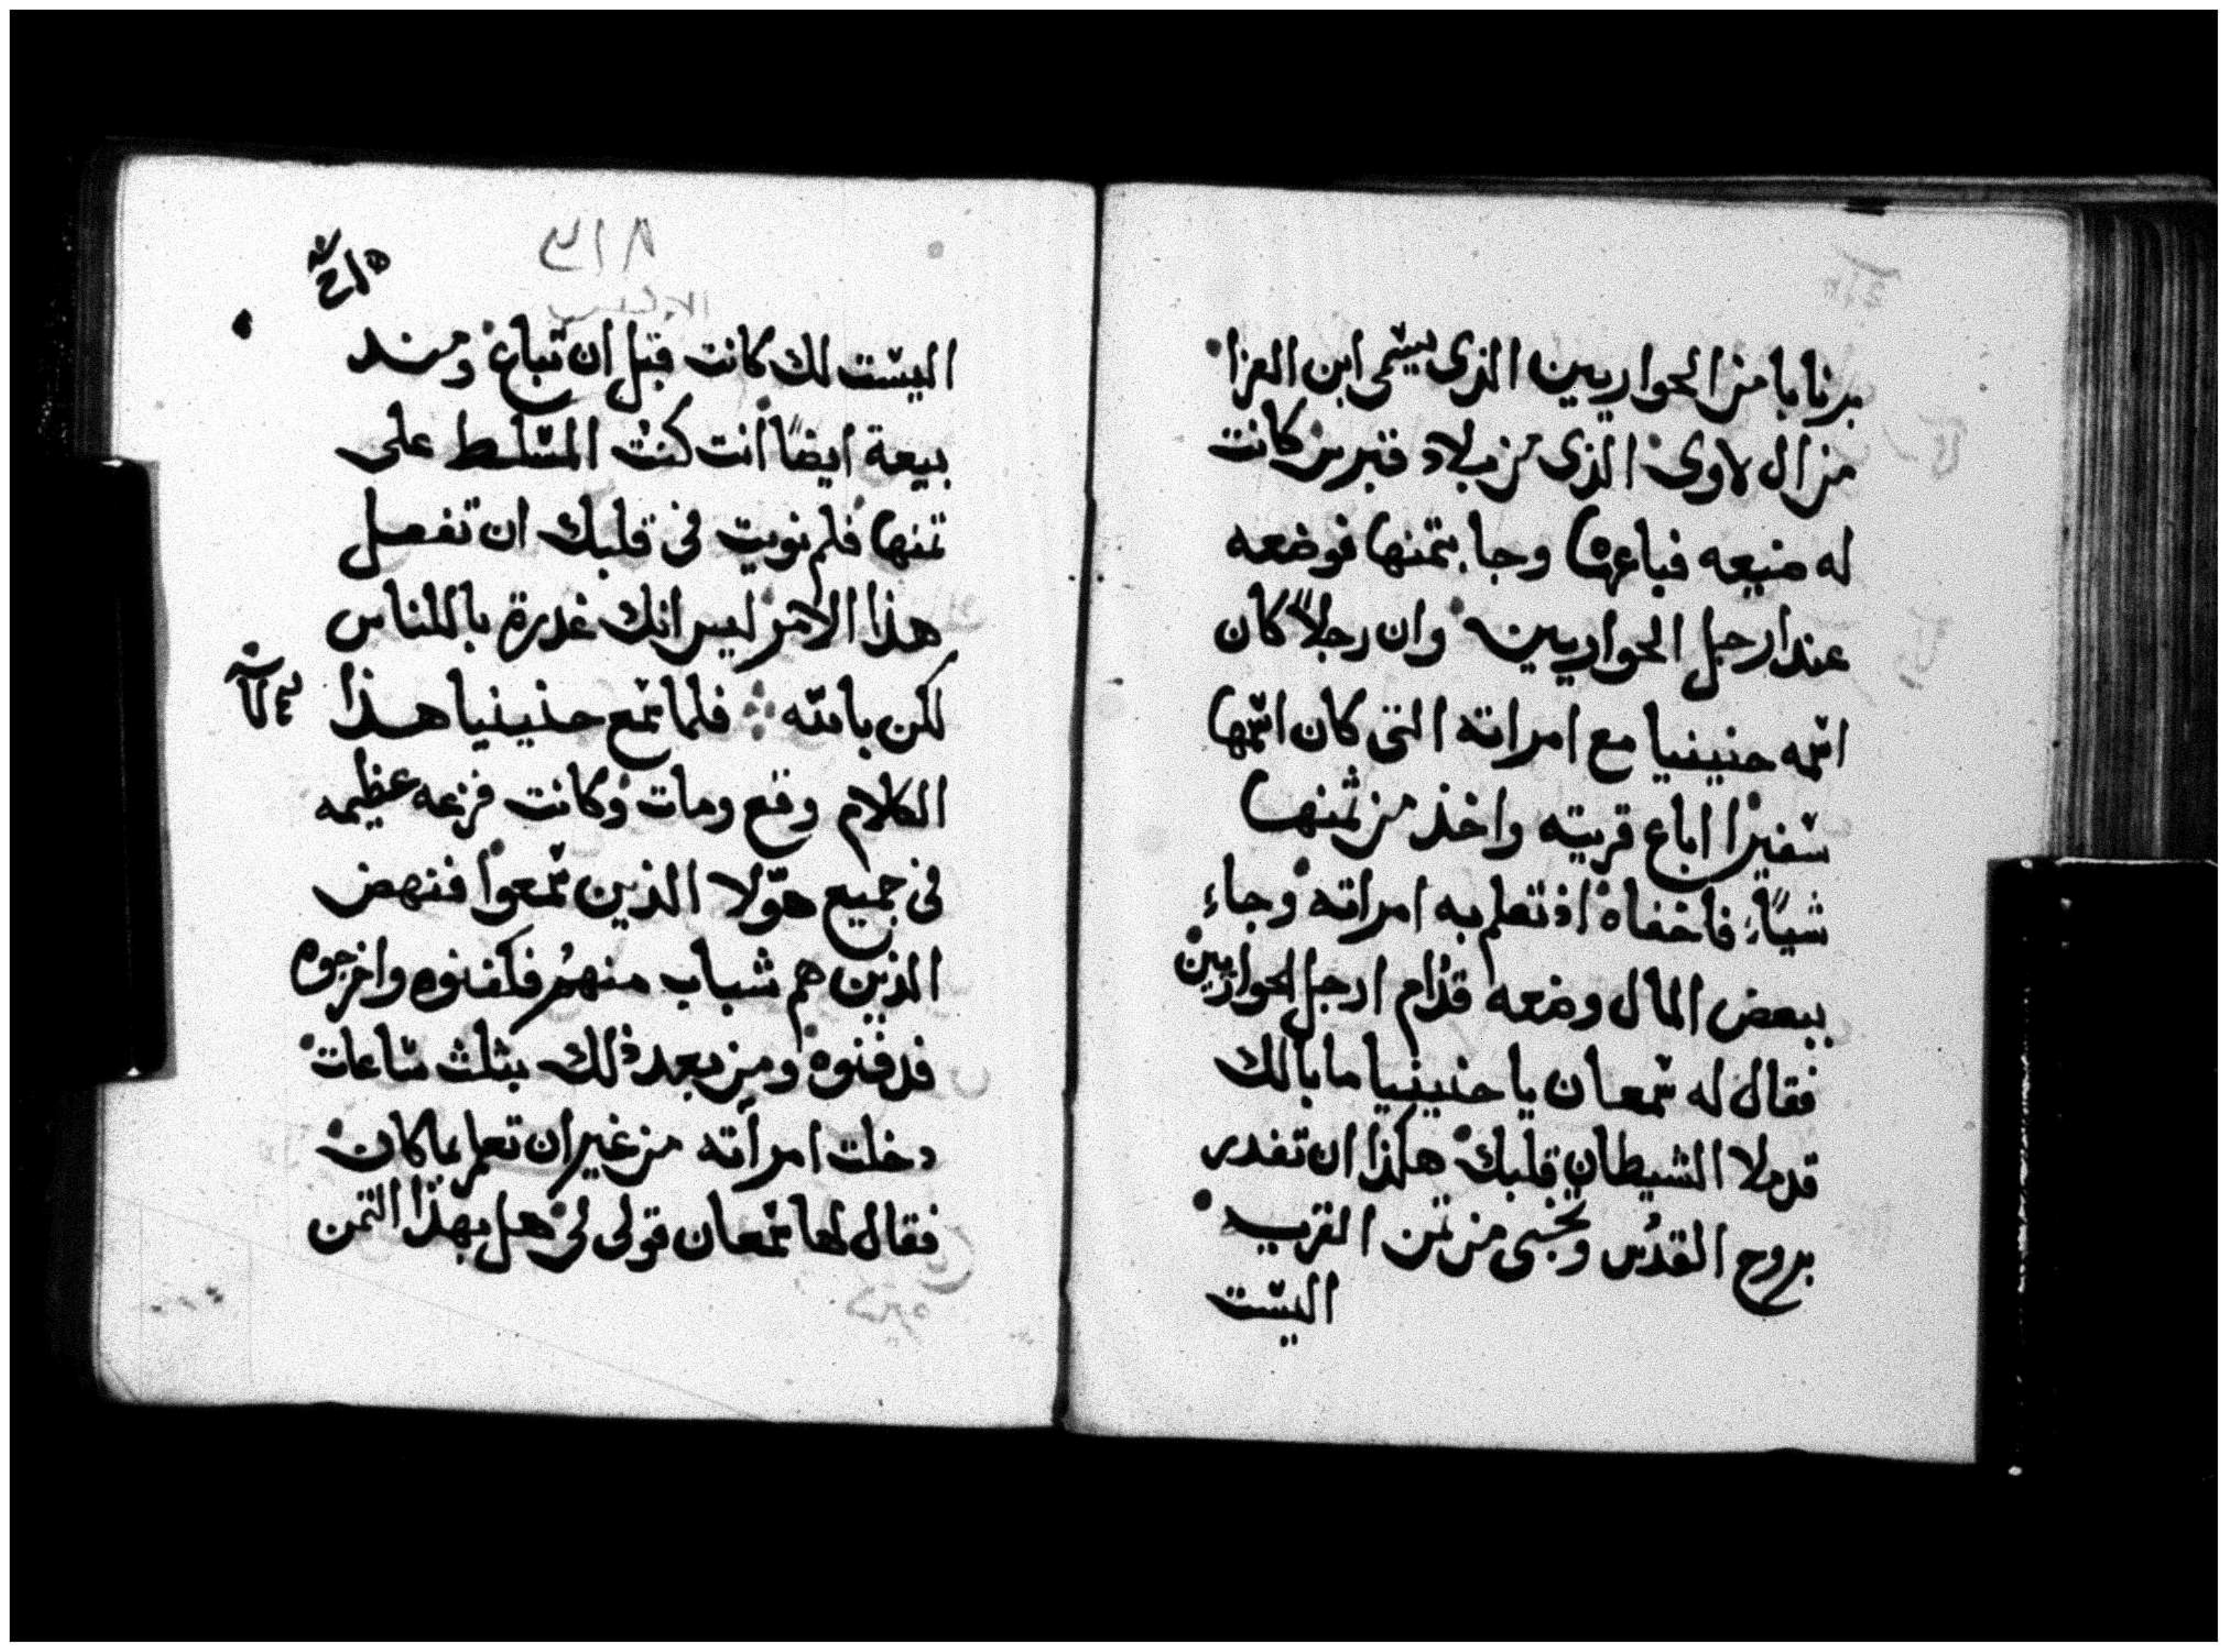 برنابا من الحواريين الذى يسمى ابن العزا
من ال لاوى الذى من بلاد قبرس كانت
له ضيعه فباعها وجا بثمنها فوضعه
عند ارجل الحواريين وان رجلاً كان
اسمه حنينيا مع امراته التى كان اسمها
سفيرا اباع قريته واخذ من ثمنها
شياً فاخفاه اذ تعلم به امراته وجاء
ببعض المال وضعه قدام ارجل الحواريين
فقال له سمعان يا حنينيا ما بالك
قد ملا الشيطان قلبك هكذا ان تغدر
بروح القدس وتخبى من ثمن القريه
اليست
٣١٨
اليست لك كانت قبل ان تباع ومند
بيعة ايضاً انت كنت المسلط على
ثمنها فلم نويت فى قلبك ان تفعل
هذا الامر ليس انك غدرة بالناس
لكن بالله فلما سمع حنينيا هذا
الكلام وقع ومات وكانت فزعه عظيمه
فى جميع هولا الذين سمعوا فنهض
الذين هم شباب منهم فكفنوه واخرجوه
فدفنوه ومن بعد ذلك بثلث ساعات
دخلت امراته من غير ان تعلم بما كان
فقال لها سمعان قولى لى هل بهذا الثمن